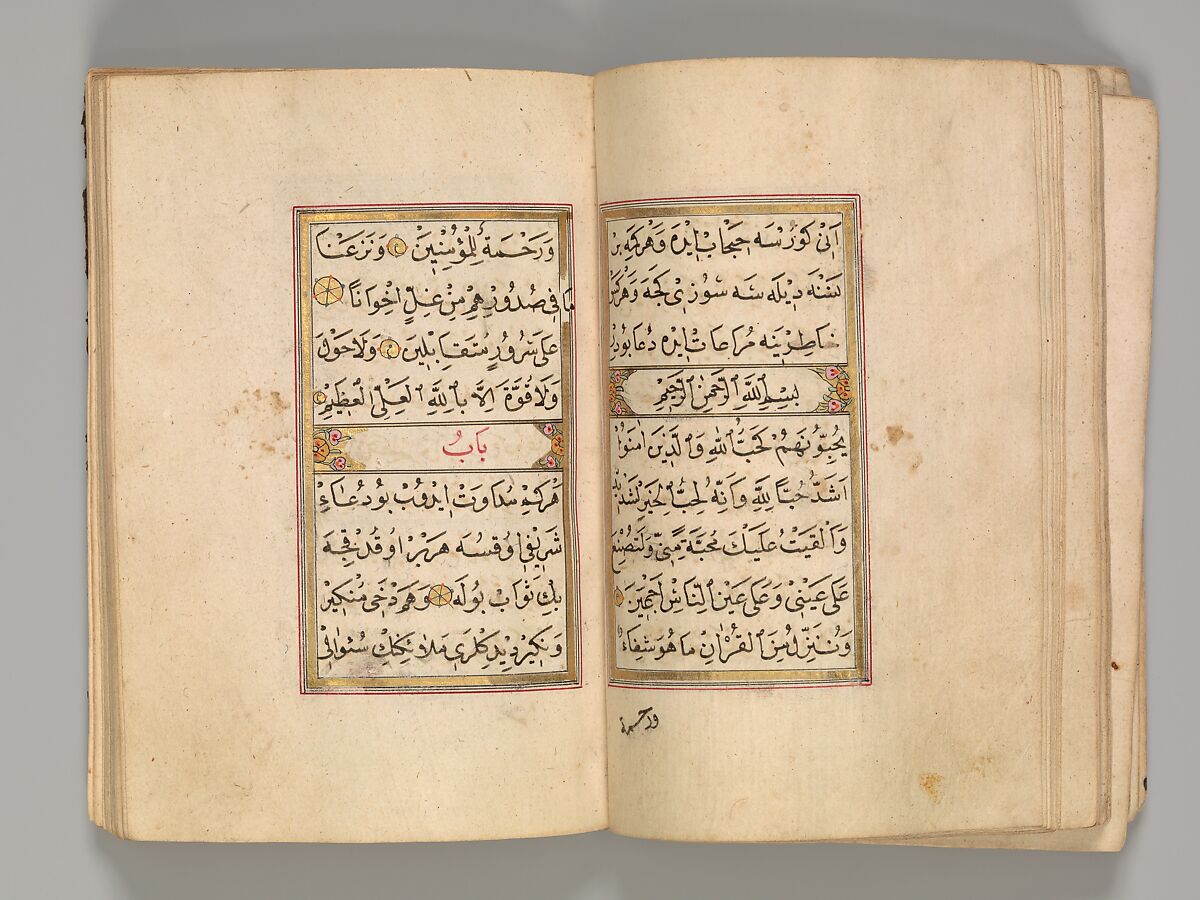 انى كورسه حجاب ايده وهر كمه بر
سننه ديله سه سوزى كچه وهركس
خاطرينه مراعات ايده دعا بودر
بِسْمِ اللَّهِ الرَّحْمَنِ الرَّحِيمِ
يُحِبُّونَهُمْ كَحُبِّ اللَّهِ وَالَّذِينَ آمَنُوا
اَشَدُّ حُبًّا لِلَّهِ وَاِنَّهُ لِحُبِّ الْخَيْرِ لَشَدِيدٌ
وَاَلْقَيْتُ عَلَيْكَ مَحَبَّةً مِنِّى وَلِتُصْنَعَ
عَلَى عَيْنِى وَعَلَى عَيْنِ النَّاسِ اَجْمَعِينَ
وَنُنَزِّلُ مِنَ الْقُرْاٰنِ مَا هُوَ شِفَاءٌ
ورحمة
وَرَحْمَةٌ لِلْمُؤْمِنِينَ وَنَزَعْنَا
مَا فِى صُدُورِهِمْ مِنْ غِلٍّ اِخْوَانًا
عَلَى سُرُورٍ مُتَقَابِلِينَ وَلَا حَوْلَ
وَلَا قُوَّةَ اِلَّا بِاللَّهِ الْعَلِىِّ الْعَظِيمِ
بَابُ
هركه مداومت ايدوب بو دعاء
شريفى اوقسه هر بر اوقدقجه
بيك ثواب بوله وهم دخى منكير
ونكير ديدكلرى ملائكك سئوالى